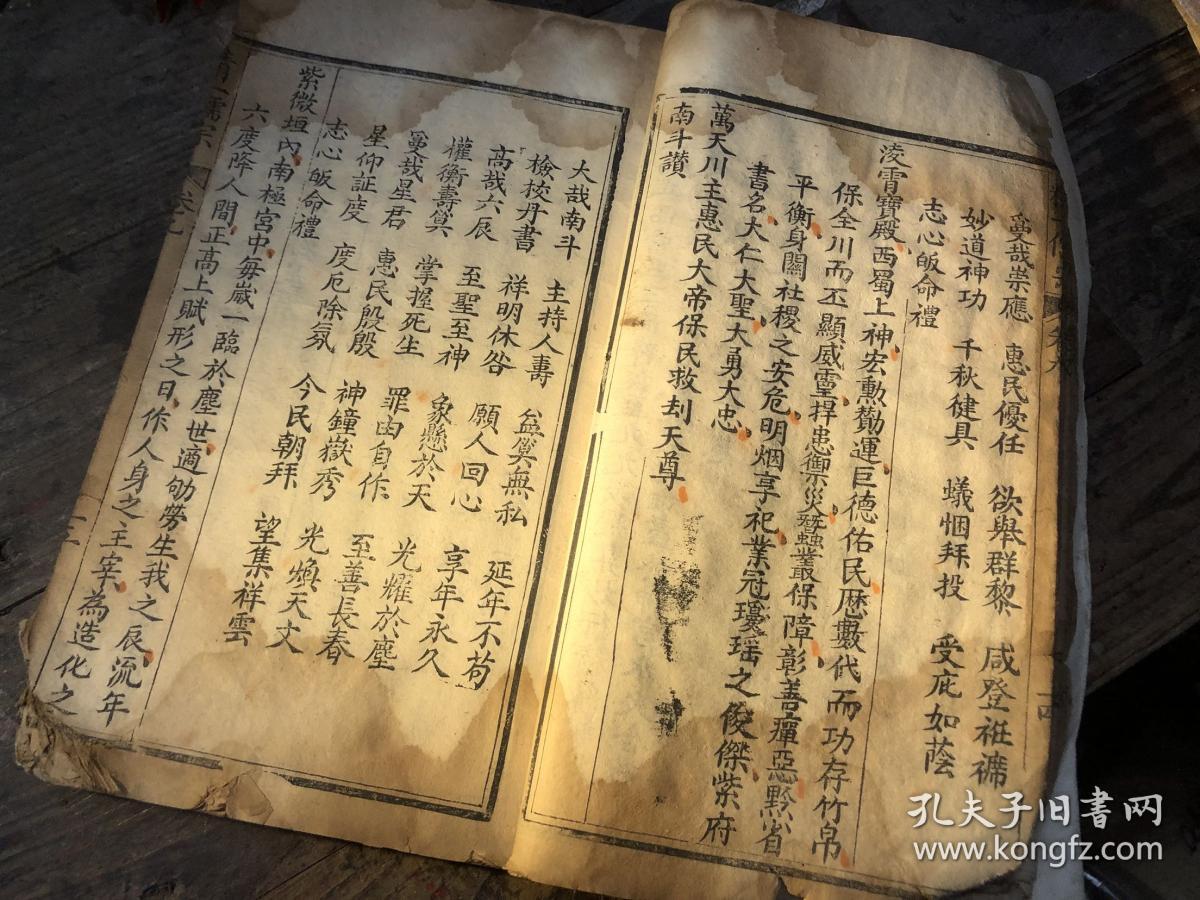 奐哉崇應 惠民優任 欲舉群黎 咸登袵褯
妙道神功 千秋健具 蟻悃拜投 受庇如蔭
志心皈命禮
淩霄寶殿西蜀上神宏勳勷運巨德佑民歷數代而功存竹帛
保全川而丕顯威靈捍患御災蠶叢保障彰善癉惡黔省
平衡身關社稷之安危明烟享祀業冠瓊瑶之俊傑紫府
書名大仁大聖大勇大忠
萬天川主惠民大帝保民救刦天尊
南斗讚
大哉南斗 主持人壽 益筭無私 延年不苟
檢校丹書 祥明休咎 願人回心 享年永久
高哉六辰 至聖至神 象懸於天 光耀於塵
權衡壽筭 掌握死生 罪由自作 至善長春
奐哉星君 惠民殷殷 神鐘嶽秀 光煥天文
星仰証度 度厄除氛 今民朝拜 望集祥雲
志心皈命禮
紫微垣內南極宮中每嵗一臨於塵世適劬勞生我之辰流年
六度降人間正高上賦形之日作人身之主宰為造化之
儒宗 卷九
孔夫子旧書网
www.kongfz.com